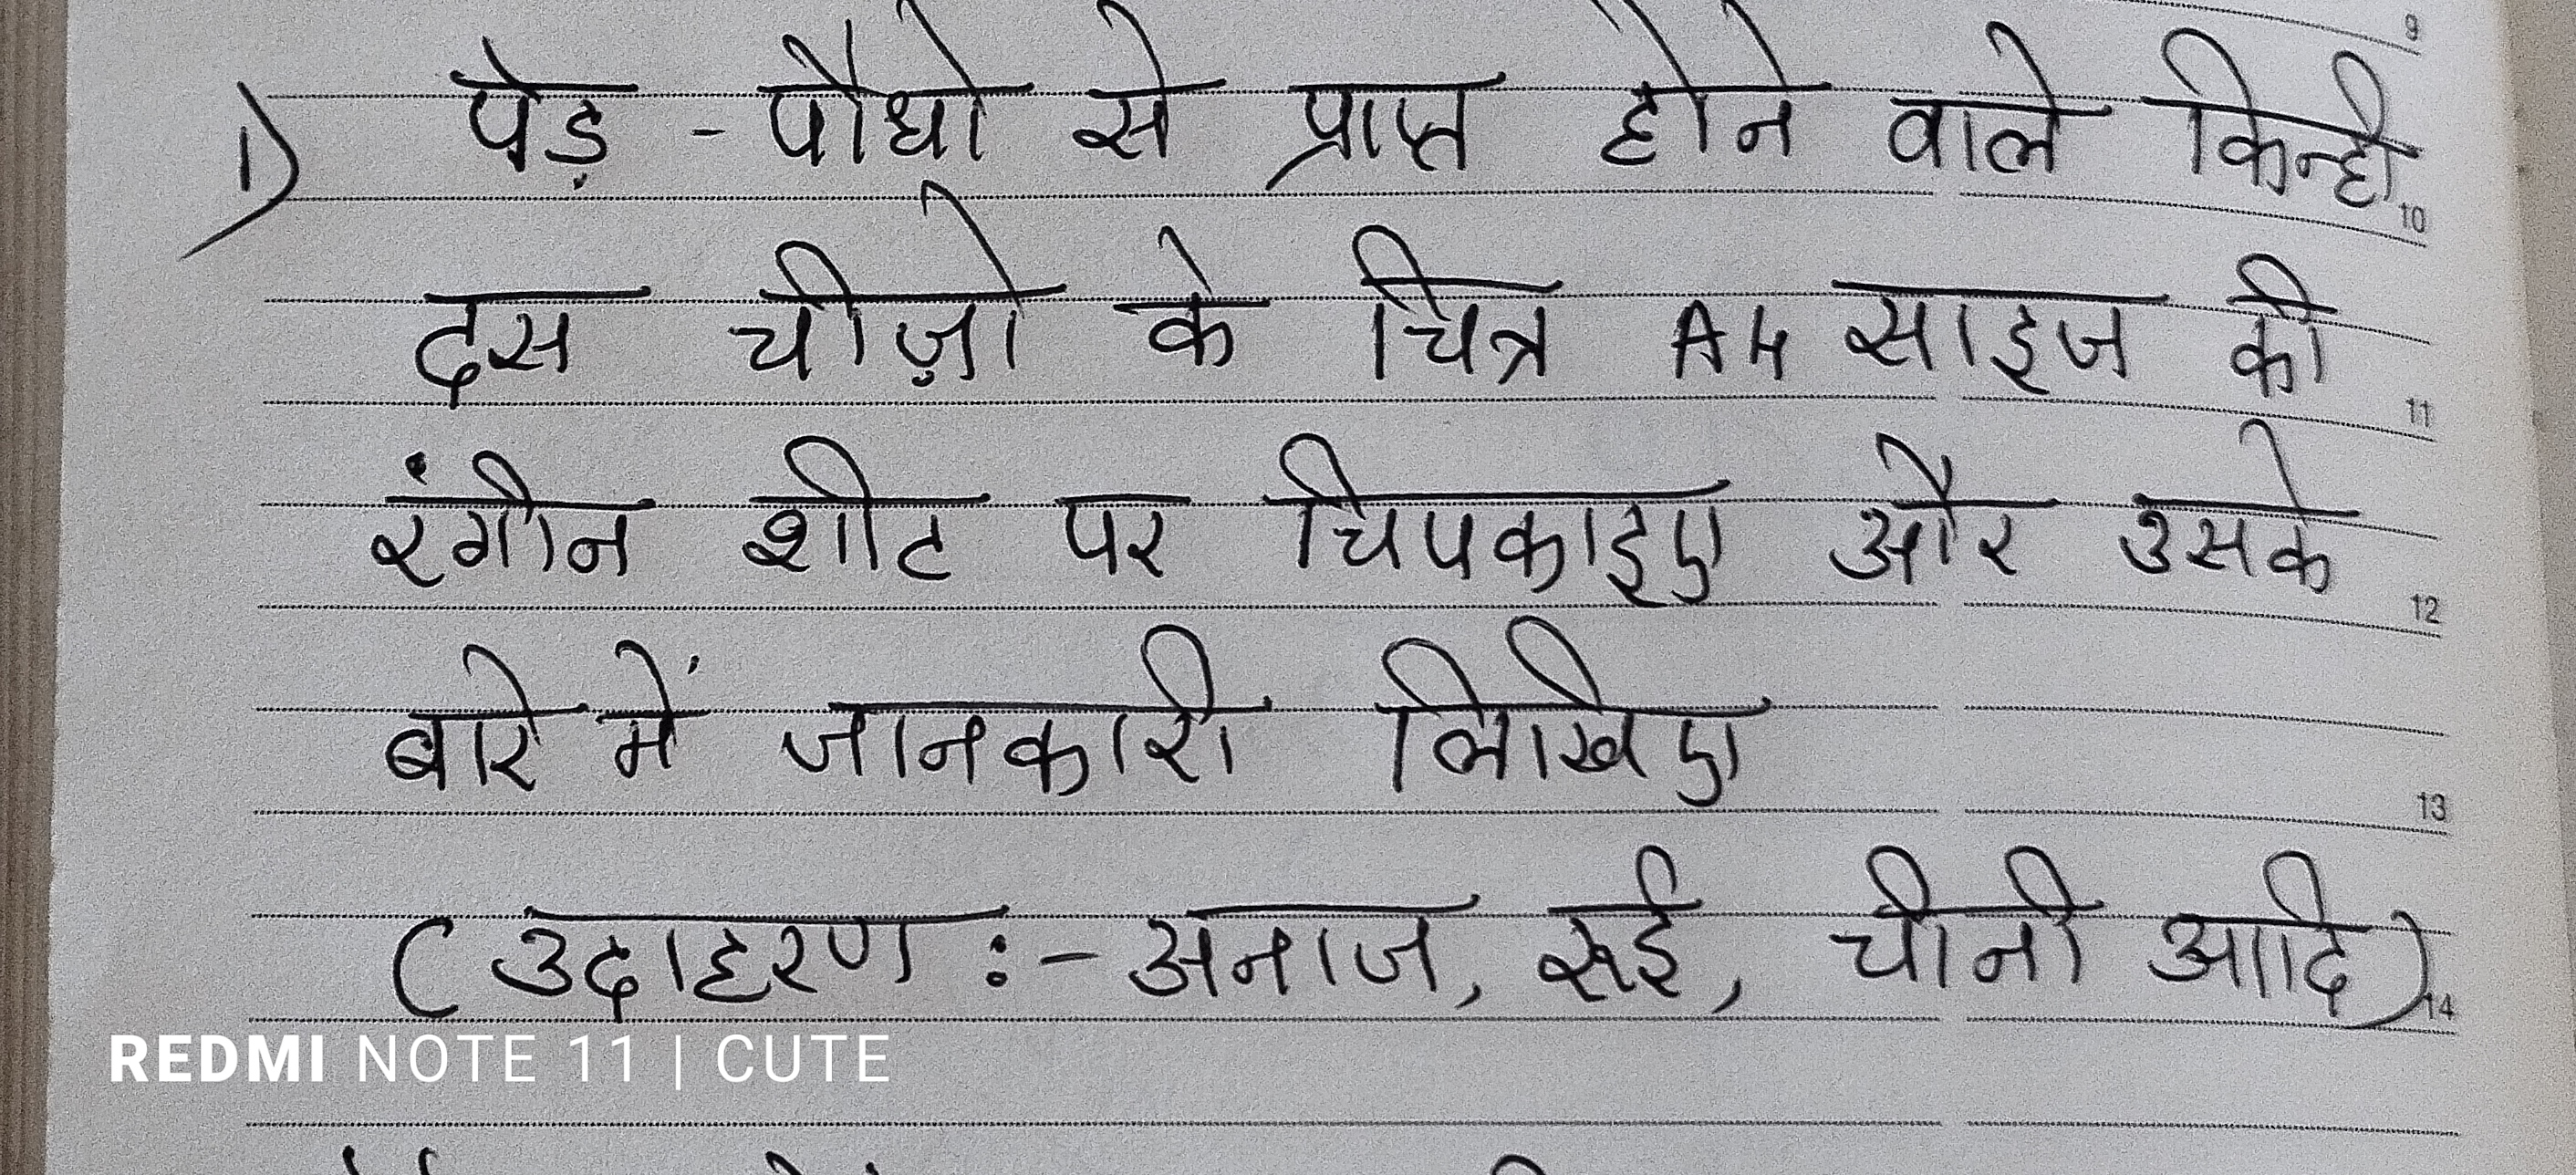 9
1) पेड़ - पौधो से प्राप्त होने वाले किन्ही
10
दस चीज़ो के चित्र A4 साइज की
11
रंगीन शीट पर चिपकाइए और उसके
12
बारे में जानकारी लिखिए
13
( उदाहरण :- अनाज, रूई, चीनी आदि)
14
REDMI NOTE 11 | CUTE